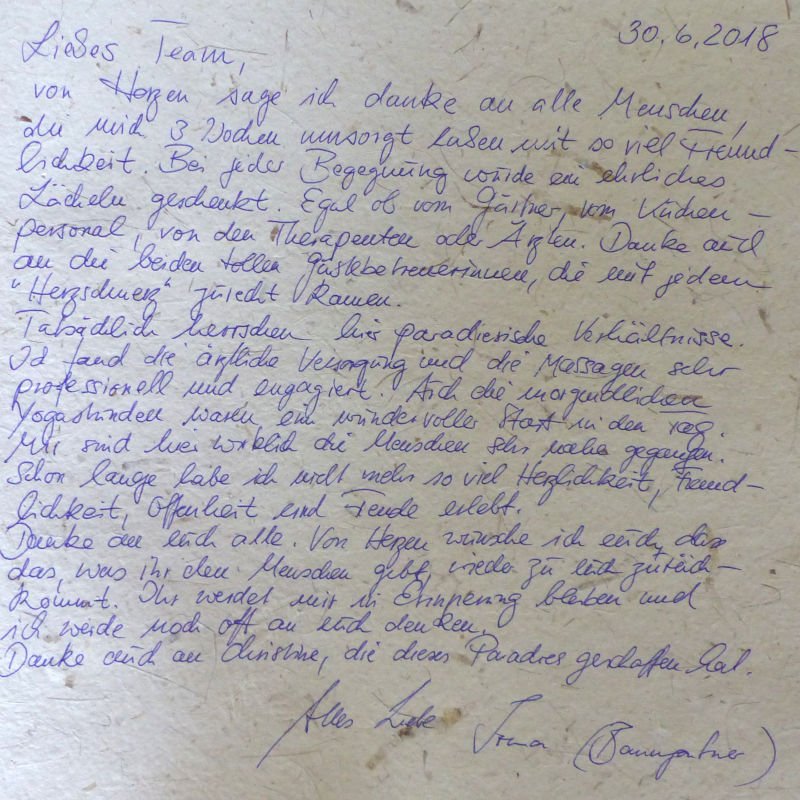 30.6.2018
Liebes Team,
von Herzen sage ich danke an alle Menschen,
die mich 3 Wochen umsorgt haben mit so viel Freund-
lichkeit. Bei jeder Begegnung wurde ein ehrliches
Lächeln geschenkt. Egal ob vom Gärtner, vom Küchen-
personal, von den Therapeuten oder Ärzten. Danke auch
an die beiden tollen Gästebetreuerinnen, die mit jedem
"Herzschmerz" zurecht kamen.
Tatsächlich herrschen hier paradiesische Verhältnisse.
Ich fand die ärztliche Versorgung und die Massagen sehr
professionell und engagiert. Auch die morgendlichen
Yogastunden waren ein wundervoller Start in den Tag.
Mir sind hier wirklich die Menschen sehr nahe gegangen.
Schon lange habe ich nicht mehr so viel Herzlichkeit, Freund-
lichkeit, Offenheit und Freude erlebt.
Danke an euch alle. Von Herzen wünsche ich euch, dass
das, was ihr den Menschen gebt, wieder zu euch zurück-
kommt. Ihr werdet mir in Erinnerung bleiben und
ich werde noch oft an euch denken.
Danke auch an Christine, die dieses Paradies geschaffen hat.
Alles Liebe Irma (Baumgartner)